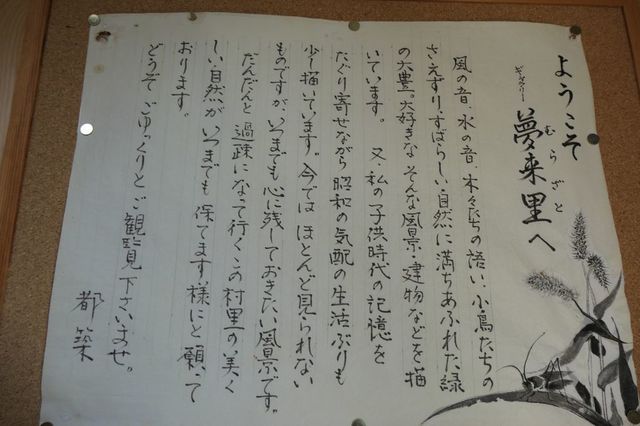 ようこそ
ギャラリー
夢来里へ
むらざと
風の音、水の音、木々たちの語い、小鳥たちの
さえずり、すばらしい自然に満ちあふれた緑
の大豊。大好きなそんな風景・建物などを描
いています。又、私の子供時代の記憶を
たぐり寄せながら昭和の気配の生活ぶりも
少し描いています。今ではほとんど見られない
ものですが、いつまでも心に残しておきたい風景です。
だんだんと過疎になって行くこの村里の美く
しい自然がいつまでも保てます様にと願って
おります。
どうぞごゆっくりとご観覧下さいませ。
都築